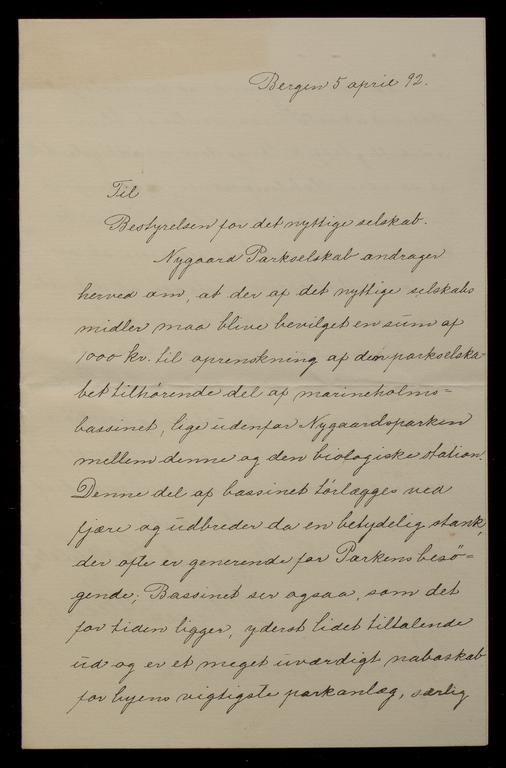 Bergen 5 april 92.
Til
Bestyrelsen for det nyttige selskab.
Nygaard Parkselskab andrager
herved om, at der af det nyttige selskabs
midler maa blive bevilget en sum af
1000 kr. til oprenskning af den parkselska-
bet tilhørende del af marineholms=
bassinet, lige udenfor Nygaardsparken
mellem denne og den biologiske station.
Denne del af bassinet tørlægges ved
fjære og udbreder da en betydelig stank,
der ofte er generende for Parkens besø=
gende; Bassinet ser ogsaa, som det
for tiden ligger, yderst lidet tiltalende
ud og er et meget uværdigt naboskab
for byens vigtigste parkanlæg, særlig